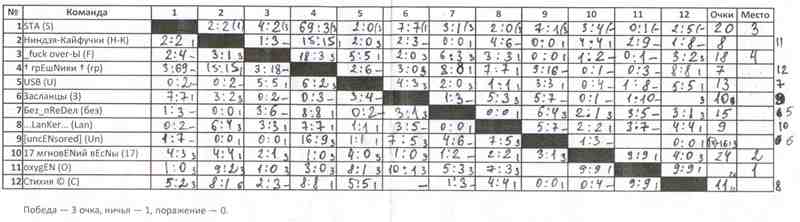 № Команда 1 2 3 4 5 6 7 8 9 10 11 12 Очки Место
1 STA (S) 2:2 4:2 69:3 2:0 7:7 3:1 2:0 7:1 3:4 0:1 2:5 20 3
2 Ниндзя-Кайфучки (Н-К) 2:2 1:3 15:15 2:0 2:3 0:0 4:6 0:0 4:4 2:9 1:8 8 11
3 _fuck over-Ы (F) 2:4 3:1 18:3 5:5 2:0 6:3 3:3 0:0 1:2 0:1 3:2 18 4
4 † грЕшNики † (гр) 3:69 15:15 3:18 2:6 3:0 8:8 7:7 9:16 0:1 0:3 8:8 7 12
5 USB (U) 0:2 0:2 5:5 6:2 4:3 2:0 1:1 3:3 0:4 1:8 5:5 13 7
6 Засланцы (З) 7:7 3:2 0:2 0:3 3:4 1:3 5:3 5:7 0:1 1:10 10 9
7 без_оRеDел (без) 1:3 0:0 3:6 8:8 0:2 3:1 0:0 6:4 2:1 3:5 3:1 15 5
8 ...LanKer... (Lan) 0:2 6:4 3:3 7:7 1:1 3:5 0:0 5:7 2:2 3:7 4:4 9 10
9 [uncENsored] (Un) 1:7 0:0 0:0 16:9 1:1 7:5 4:6 7:5 1:3 0:0 6
10 17 мгновENий вЕсNы (17) 4:3 4:4 2:1 1:0 4:0 1:0 1:2 2:2 3:1 9:9 4:0 24 2
11 oxygEN (O) 1:0 9:2 1:0 3:0 8:1 10:1 5:3 7:3 9:9 9:9 1
12 Стихия © (С) 5:2 8:1 2:3 8:8 5:5 1:3 4:4 0:0 0:4 9:9 11 8
Победа — 3 очка, ничья — 1, поражение — 0.